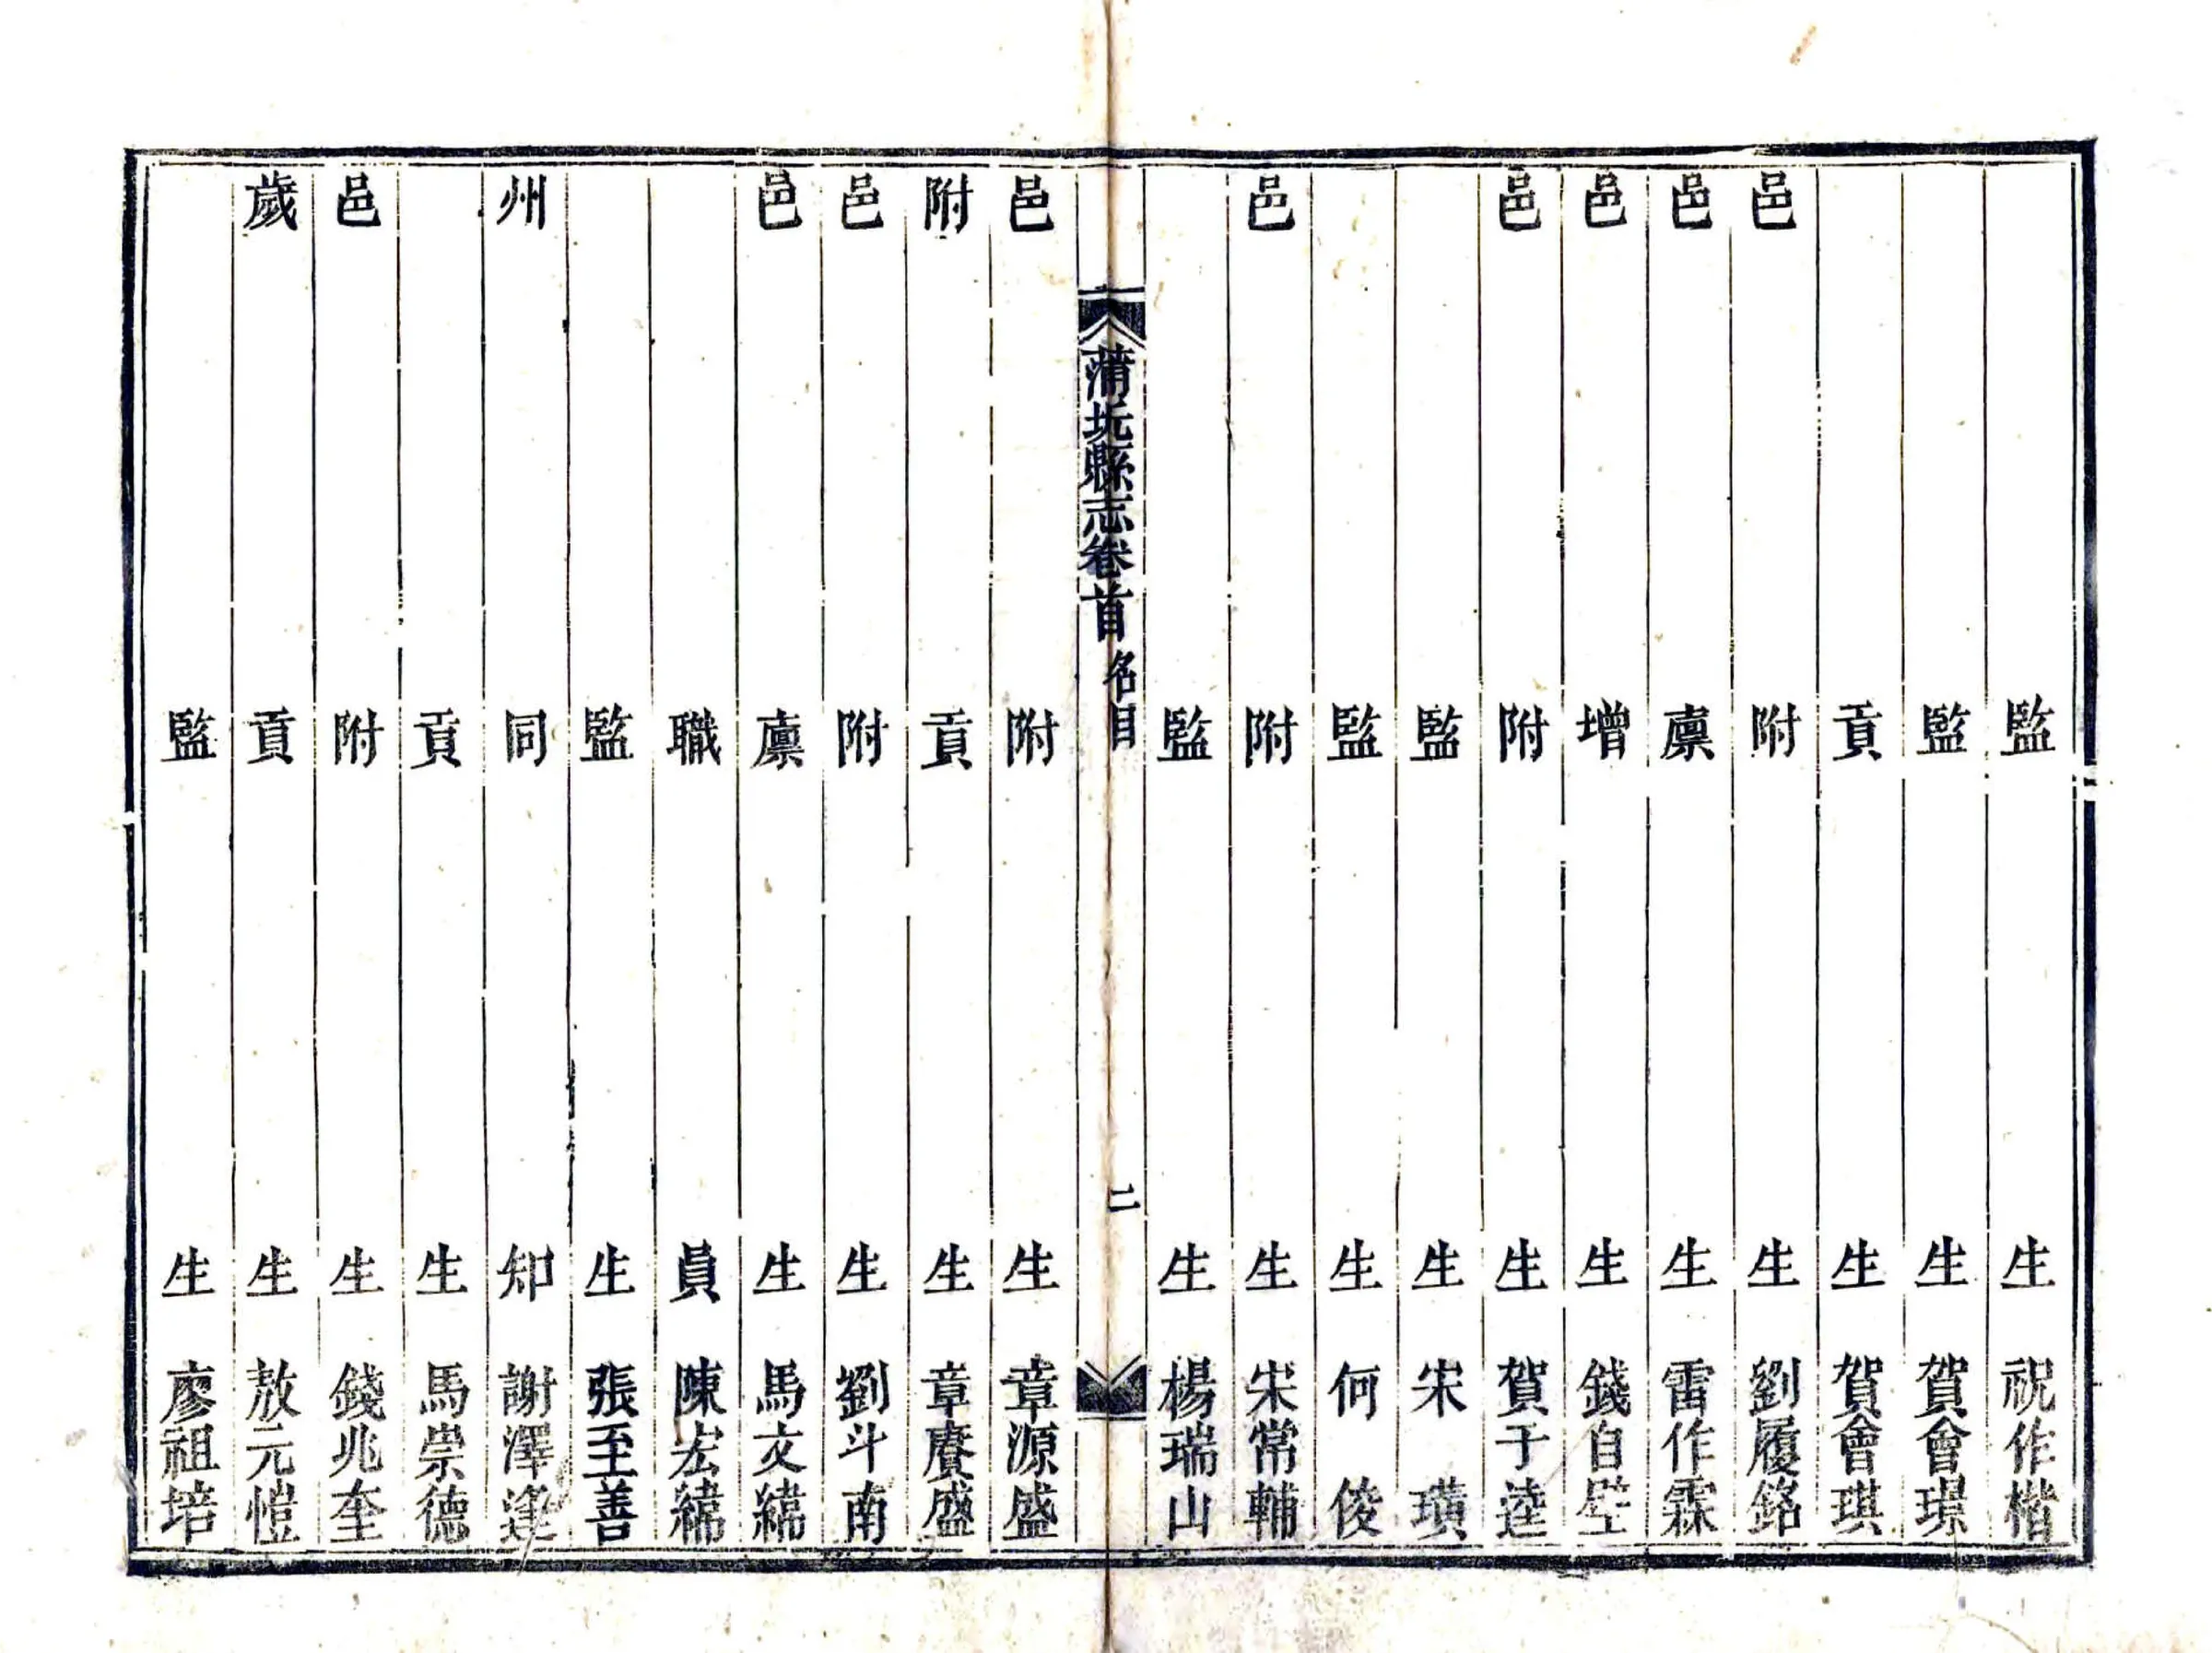 監生祝作楷
監生賀會璟
貢生賀會琪
邑附生劉履銘
邑廩生雷作霖
邑增生錢自璧
邑附生賀于逵
監生宋璜
監生何俊
邑附生宋常輔
監生楊瑞山
蒲圻縣志卷首 名目 二
邑附生章源盛
附貢生章賡盛
邑附生劉斗南
邑廩生馬文緯
職員陳宏緯
監生張至善
州同知謝澤逢
貢生馬崇德
邑附生錢兆奎
歲貢生敖元愷
監生廖祖培